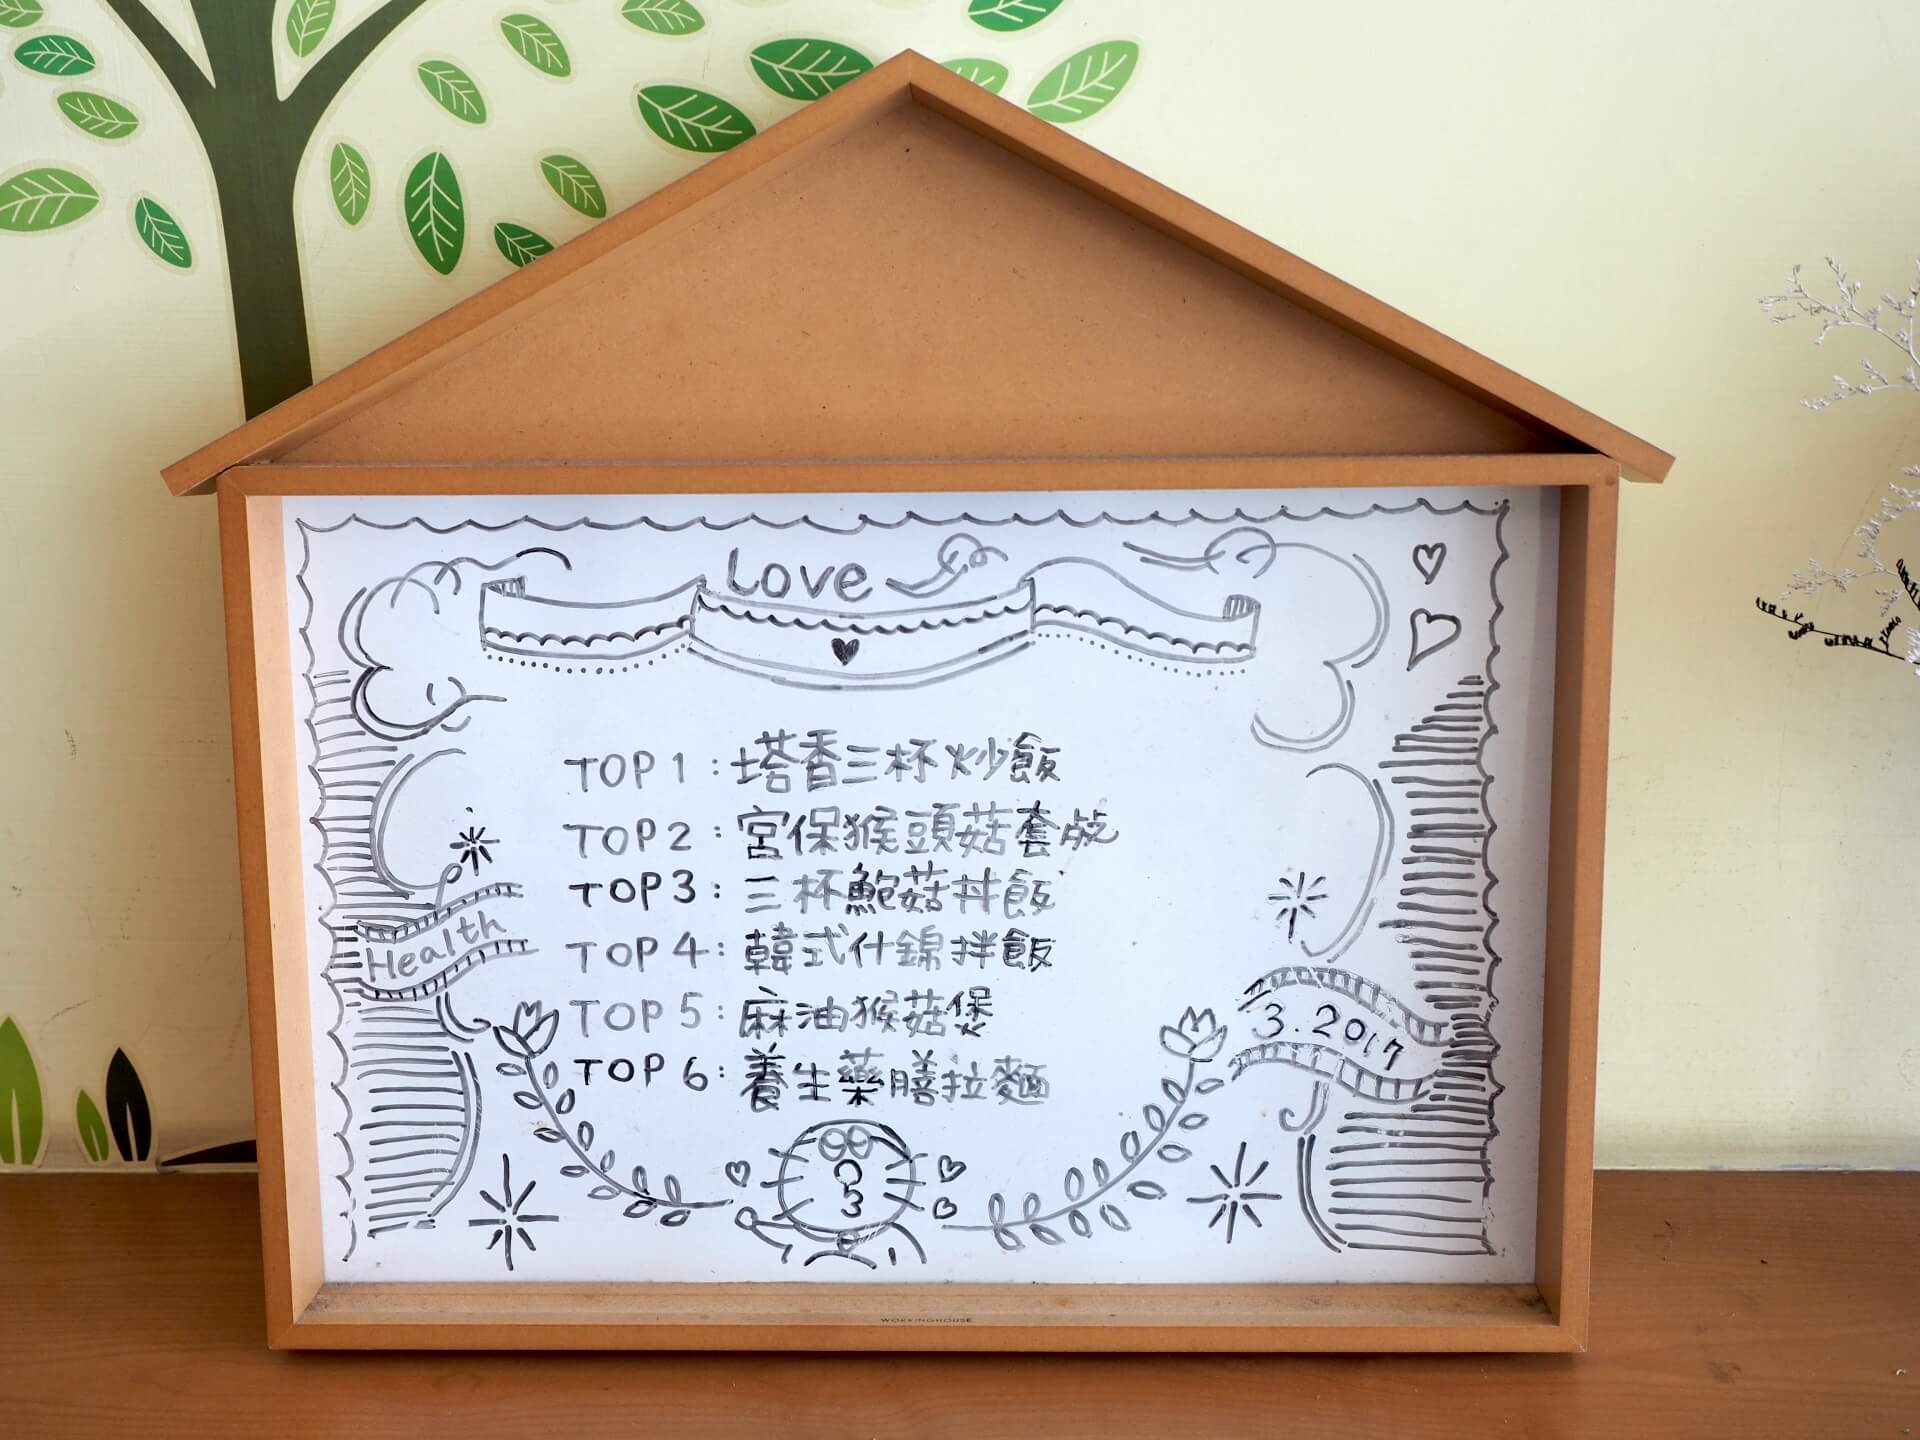 Love
TOP 1:塔香三杯炒飯
TOP 2:宮保猴頭菇套餐
TOP 3:三杯鮑菇丼飯
TOP 4:韓式什錦拌飯
TOP 5:麻油猴菇煲
TOP 6:養生藥膳拉麵
Health
3.2017
WORKINGHOUSE